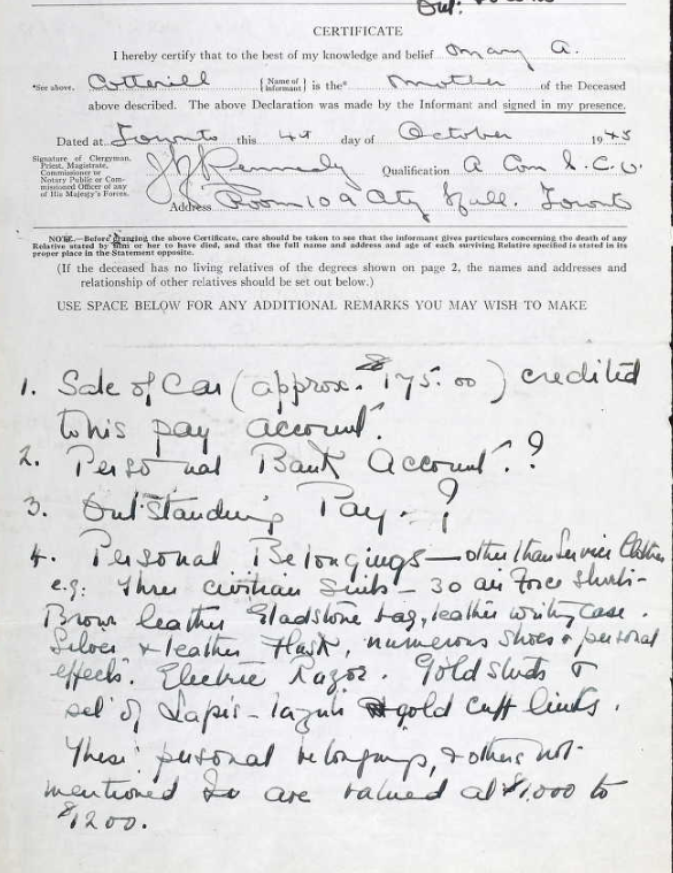 CERTIFICATE
I hereby certify that to the best of my knowledge and belief Mary A.
*See above. Cotterill { Name of Informant } is the* mother of the Deceased
above described. The above Declaration was made by the Informant and signed in my presence.
Dated at Toronto this 4th day of October 1945
Signature of Clergyman, Priest, Magistrate, Commissioner or Notary Public or Commissioned Officer of any of His Majesty's Forces. Kennedy Qualification A Com
Address Room 109 City Hall. Toronto
NOTE.—Before granting the above Certificate, care should be taken to see that the informant gives particulars concerning the death of any
Relative stated by him or her to have died, and that the full name and address and age of each surviving Relative specified is stated in its
proper place in the Statement opposite.
(If the deceased has no living relatives of the degrees shown on page 2, the names and addresses and
relationship of other relatives should be set out below.)
USE SPACE BELOW FOR ANY ADDITIONAL REMARKS YOU MAY WISH TO MAKE
1. Sale of Car (approx. $175.00) credited
to his pay account.
2. Personal Bank Account. ?
3. Outstanding Pay. ?
4. Personal Belongings — other than Service Clothes
e.g: Three civilian Suits - 30 air Force Shirts -
Brown leather Gladstone bag, leather writing case.
Silver & leather Flask, numerous shoes & personal
effects. Electric Razor. Gold studs &
set of Lapis-lazuli gold cuff links.
These personal belongings, & others not
mentioned are valued at $1,000 to
$1200.